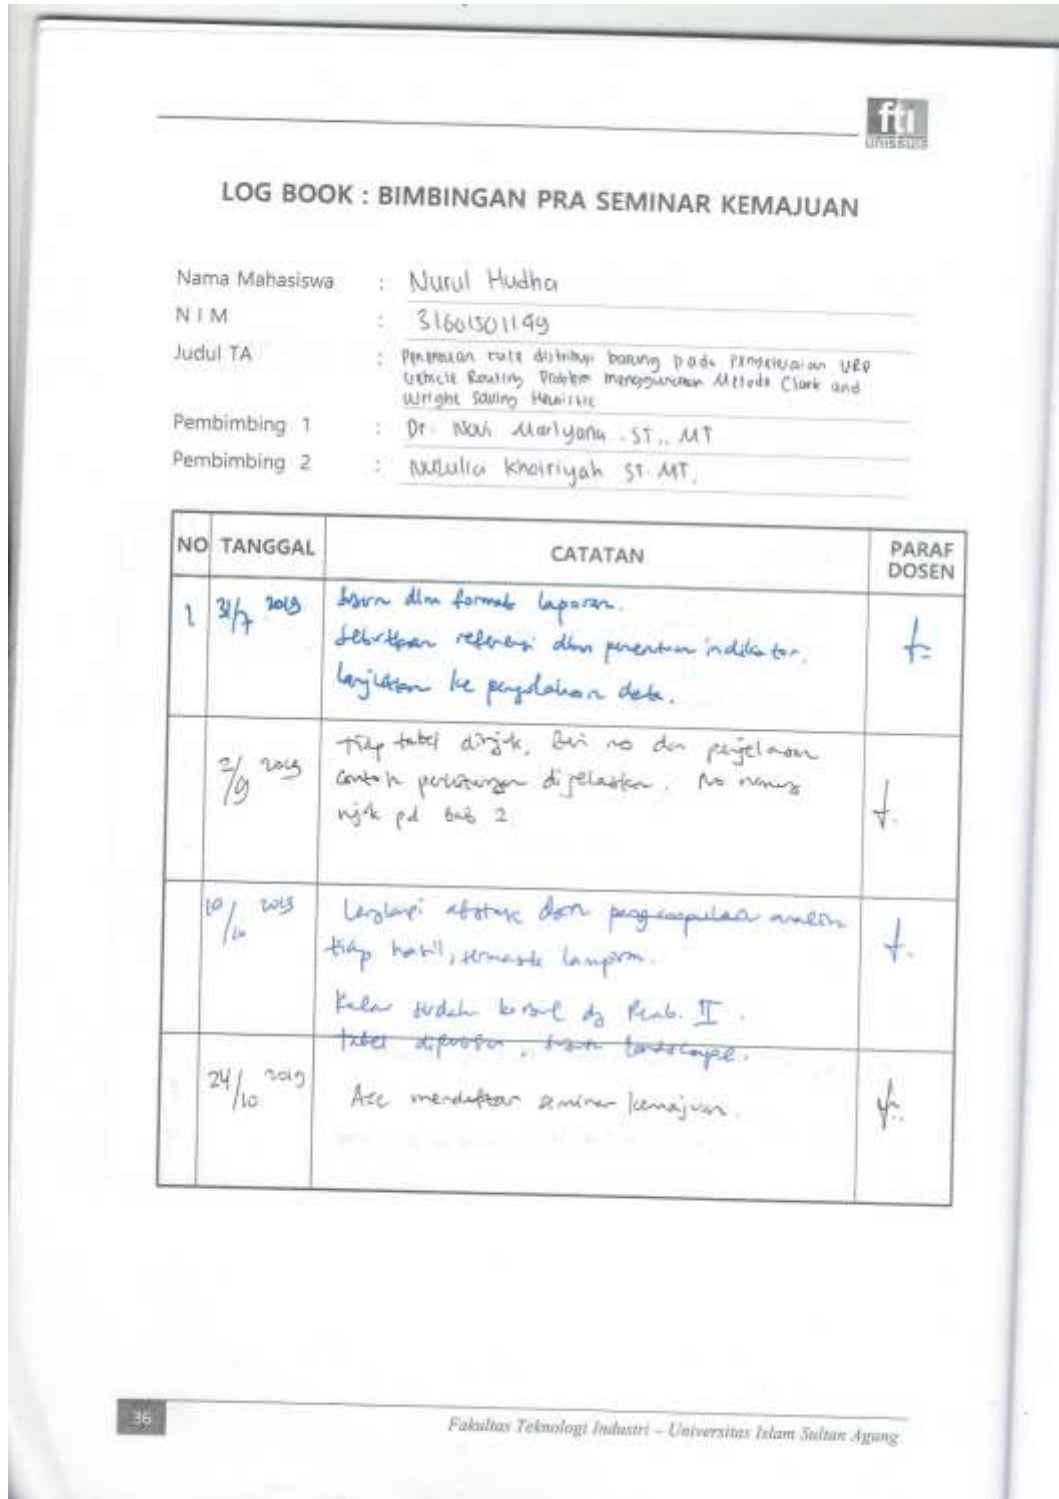 fti
unissula
LOG BOOK : BIMBINGAN PRA SEMINAR KEMAJUAN
Nama Mahasiswa : Nurul Hudha
N I M : 31601501149
Judul TA : Penentuan rute distribusi barang pada VRP
Vehicle Routing Problem menggunakan Metode Clark and
Wright Saving Heuristic
Pembimbing 1 : Dr. Novi Marlyana . ST., MT
Pembimbing 2 : Khoiriyah ST. MT,
NO TANGGAL CATATAN PARAF DOSEN
1 31/7 2019 Susun dlm format laporan.
Sebutkan referensi dlm penentuan indikator.
Lanjutkan ke pengolahan data.
2/9 2019 tiap tabel dirujuk, Beri no dan penjelasan
contoh perhitungan dijelaskan. No rumus
rujuk pd bab 2
10/10 2019 Lengkapi abstrak dan analisa
tiap hasil, termasuk lampiran.
Kalau sudah dg Pemb. II.
tabel landscape.
24/10 2019 Acc mendaftar seminar kemajuan.
36
Fakultas Teknologi Industri – Universitas Islam Sultan Agung